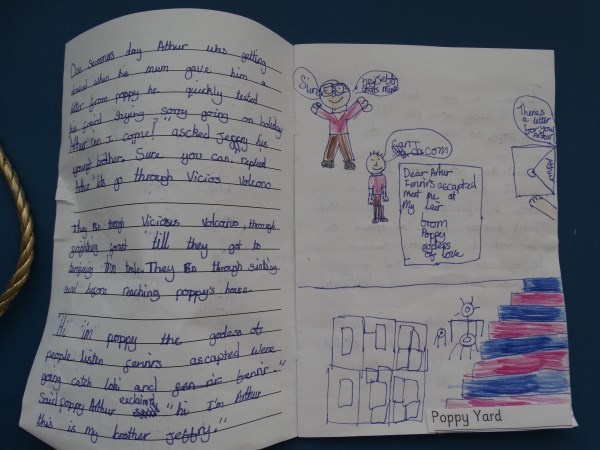 One summers day Arthur was getting
dressed when his mum gave him a
letter from poppy he quickly texted
his friend saying sorry going on holiday
"Arthur can I come?" ascked jeffry his
younger bother. Sure you can replied
lets go through Vicias Volcano
They through Viciosus Volcano, through
forest till they got to
They through sinking
sand before reaching poppy's house
"Hi I'm poppy the godess of
people listen fenrirs ascapted were
going catch loki and fenrir."
Said poppy Arthur exclaimd "hi I'm Arthur
this is my brother jeffry."
thats mine
can I
com
Dear Arthur
Fenrirs ascapted
meet me at
My Lair
from
Poppy
godess
of love
Theres
a letter
for you
Arthur
Poppy Yard